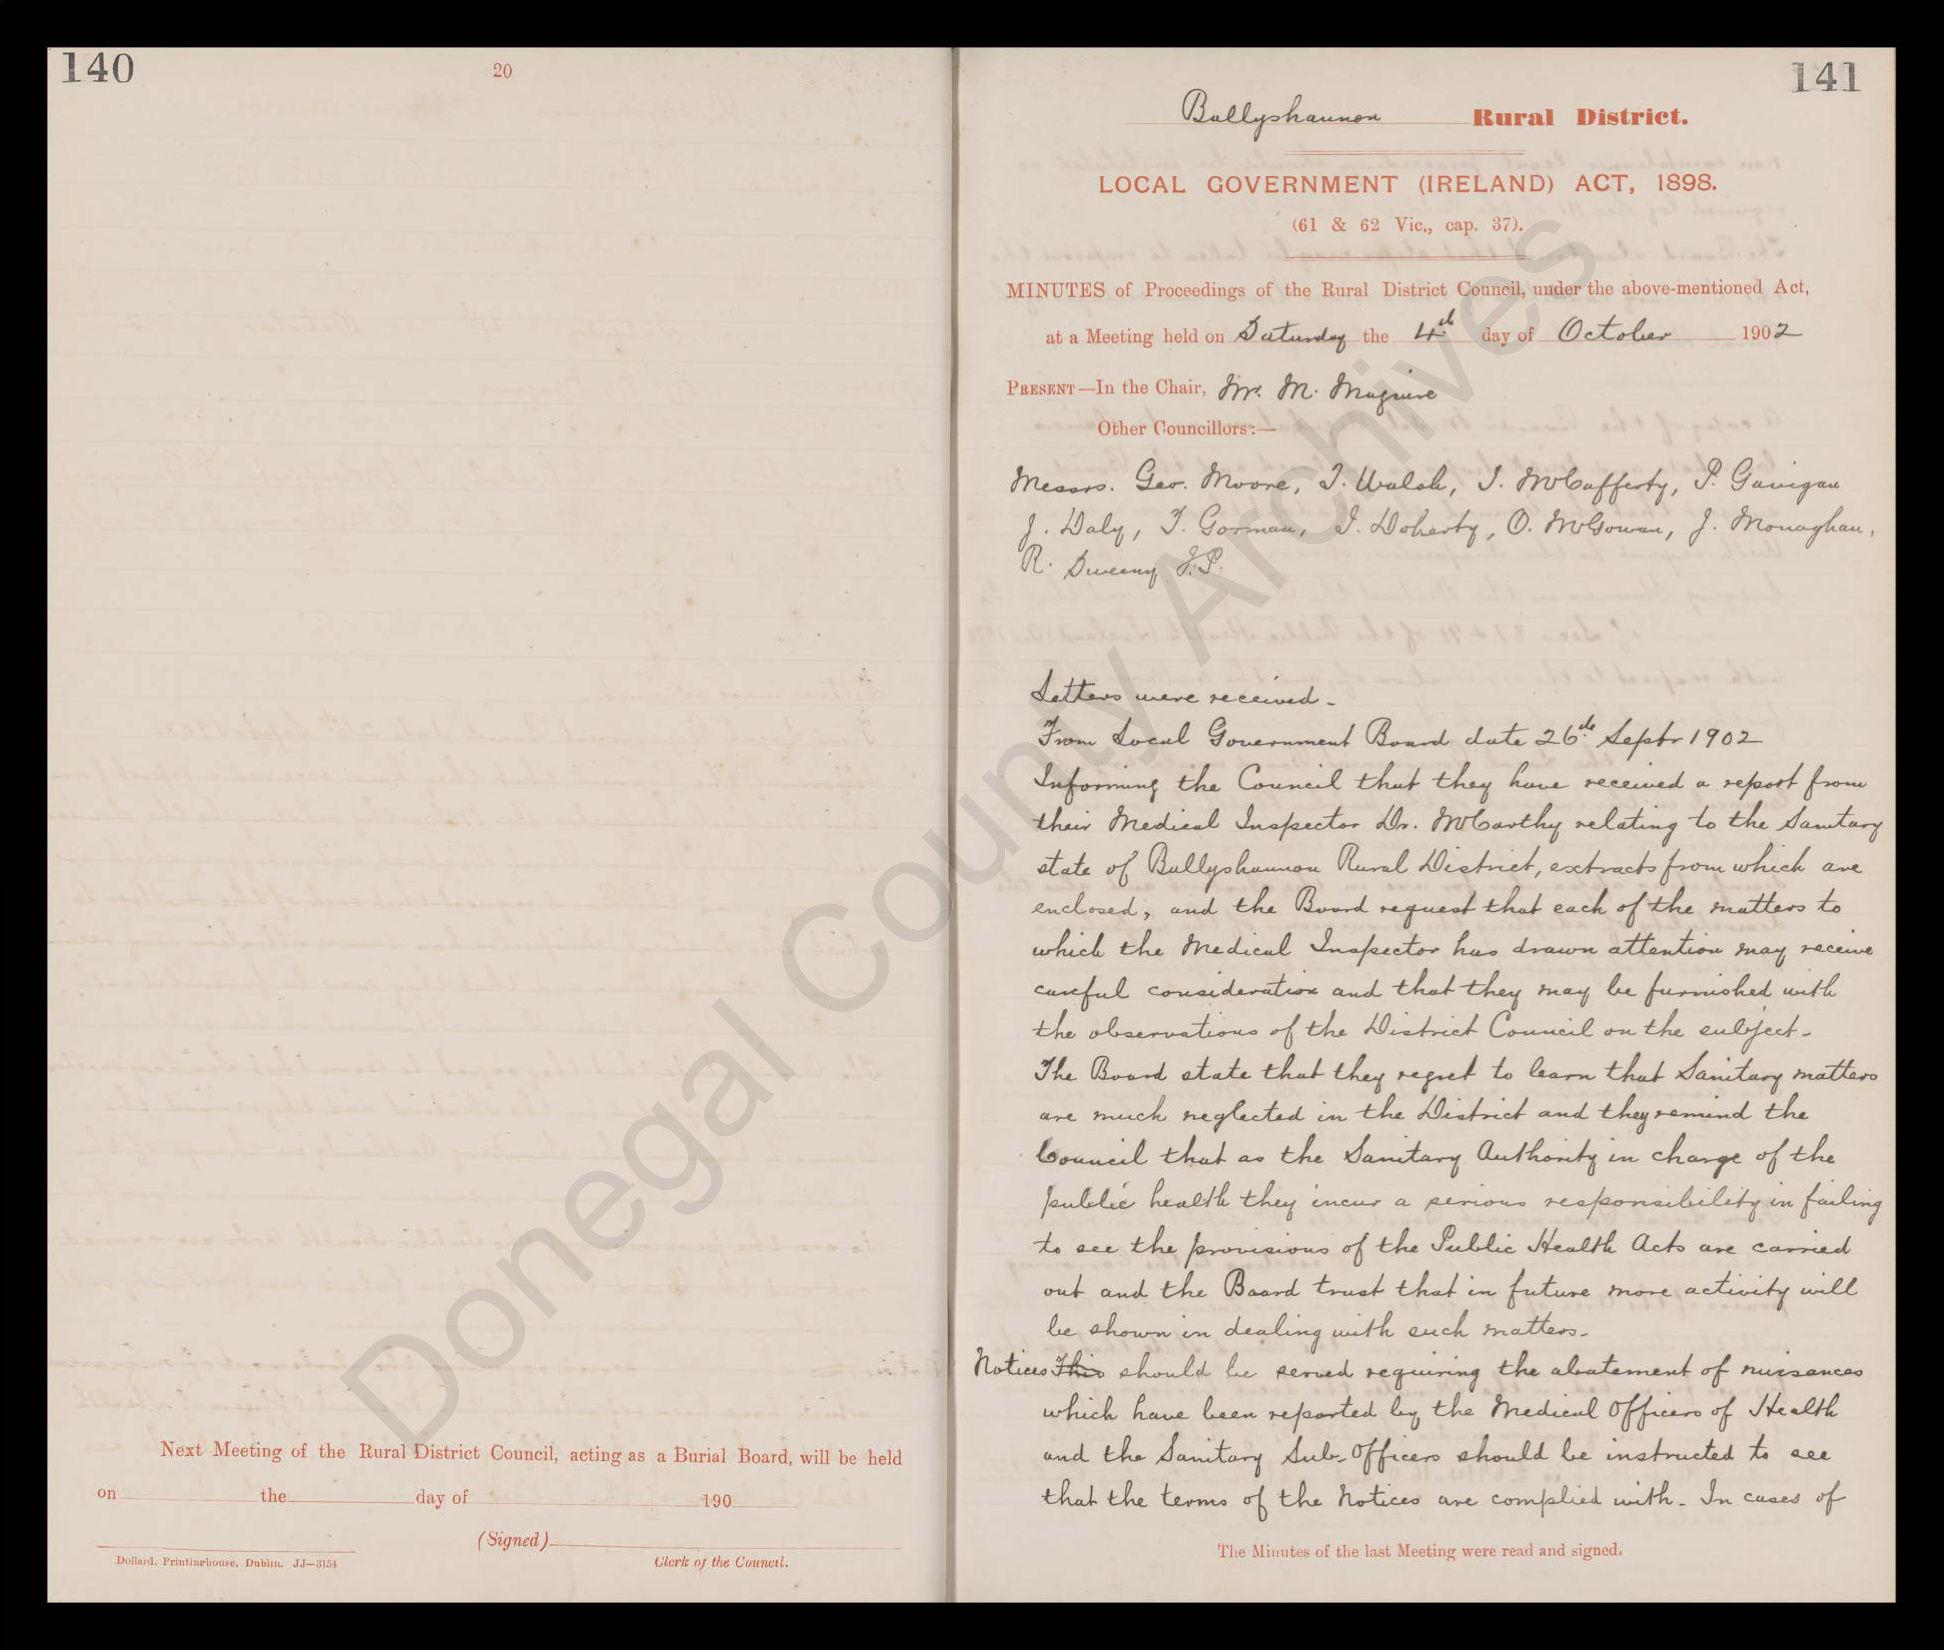 140
20
Next Meeting of the Rural District Council, acting as a Burial Board, will be held
on the day of 190
(Signed)
Dollard, Printinghouse, Dublin. JJ—3154
Clerk of the Council.
141
Ballyshannon Rural District.
LOCAL GOVERNMENT (IRELAND) ACT, 1898.
(61 & 62 Vic., cap. 37).
MINUTES of Proceedings of the Rural District Council, under the above-mentioned Act,
at a Meeting held on Saturday the 4th day of October 1902
PRESENT—In the Chair, Mr. M. Maguire
Other Councillors:—
Messrs. Geo. Moore, T. Walsh, J. McCafferty, P. Gavigan
J. Daly, T. Gorman, J. Doherty, O. McGowan, J. Monaghan,
R. Sweeny J.P.
Letters were received -
From Local Government Board date 26th Septr 1902
Informing the Council that they have received a report from
their Medical Inspector Dr. McCarthy relating to the Sanitary
state of Ballyshannon Rural District, extracts from which are
enclosed, and the Board request that each of the matters to
which the Medical Inspector has drawn attention may receive
careful consideration and that they may be furnished with
the observations of the District Council on the subject -
The Board state that they regret to learn that Sanitary matters
are much neglected in the District and they remind the
Council that as the Sanitary Authority in charge of the
public health they incur a serious responsibility in failing
to see the provisions of the Public Health Acts are carried
out and the Board trust that in future more activity will
be shown in dealing with such matters -
Notices This should be served requiring the abatement of nuisances
which have been reported by the Medical Officers of Health
and the Sanitary Sub-Officers should be instructed to see
that the terms of the Notices are complied with - In cases of
The Minutes of the last Meeting were read and signed.
Donegal County Archives